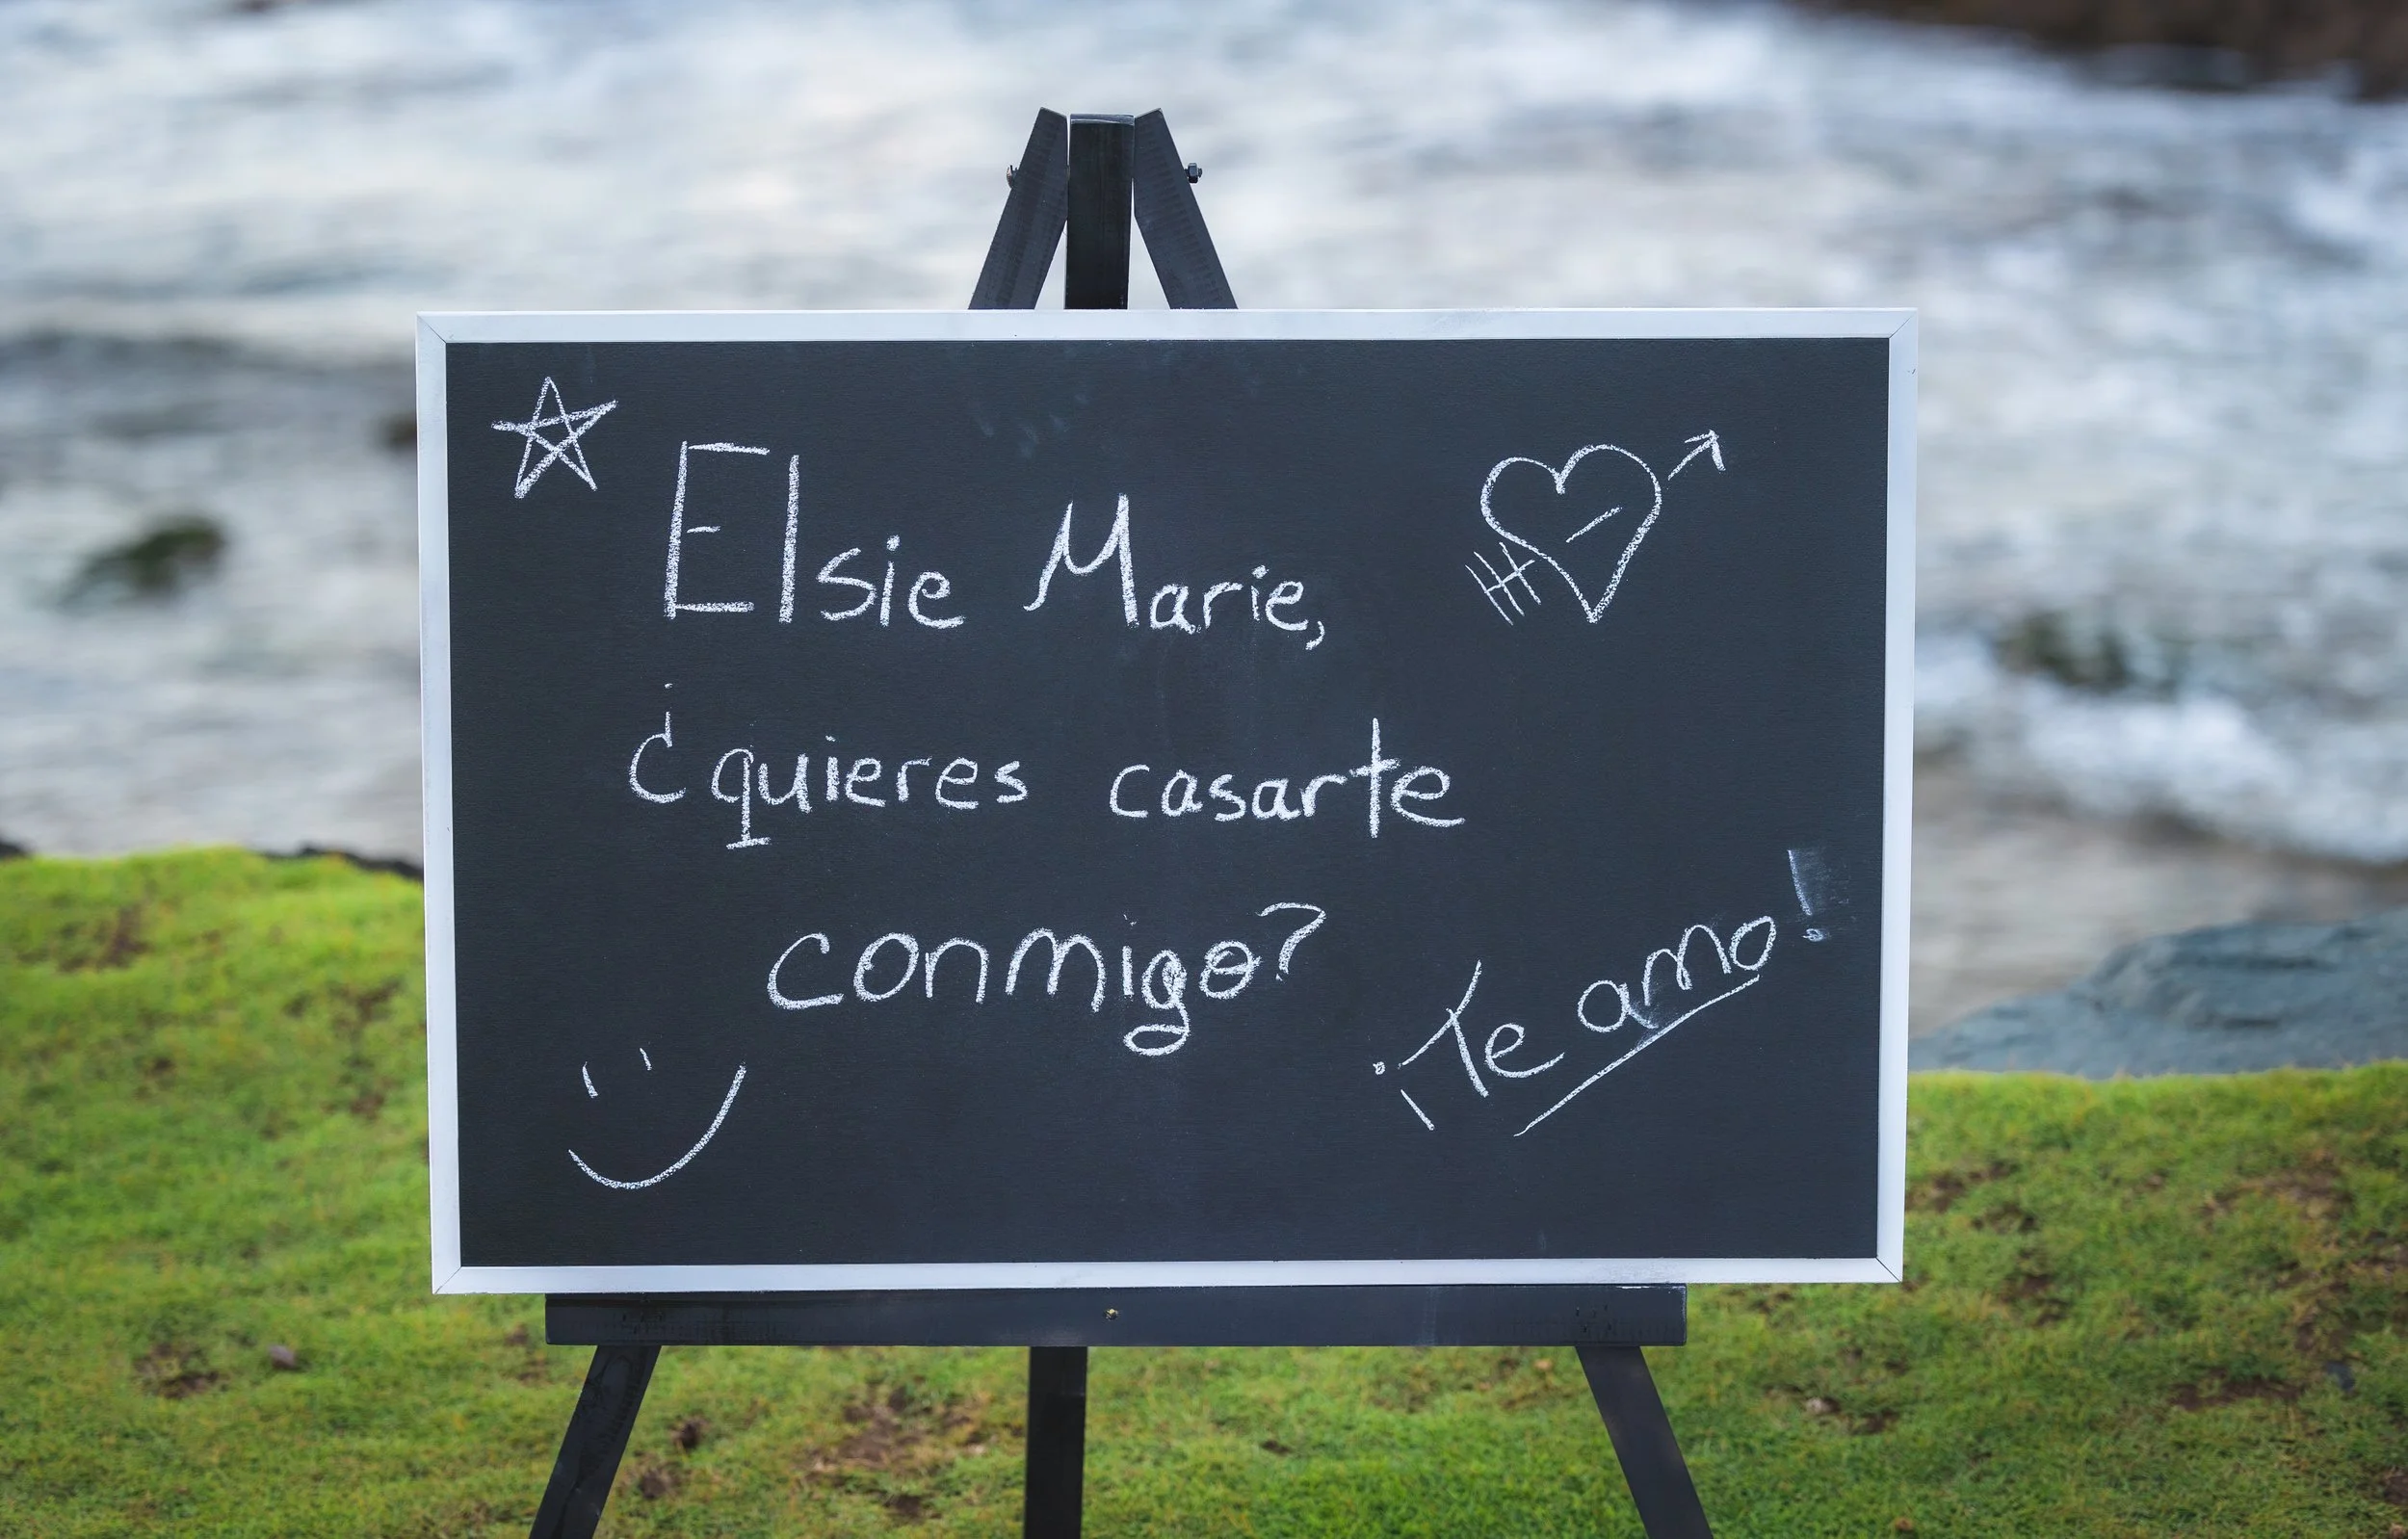 Elsie Marie,
¿quieres casarte
conmigo?
¡Te amo!